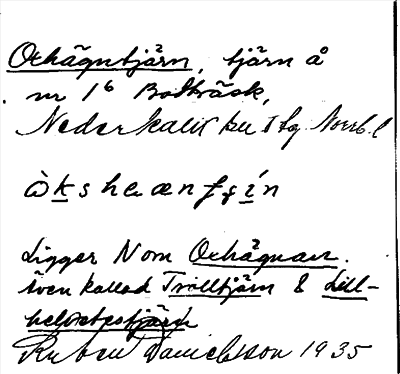 Oxhägntjärn, tjärn å
nr 1⁶ Bodträsk,
Nederkalix sn Norrb. l
Ligger N om Oxhägnan.
Även kallad Trolltjärn & Lill-
helvetestjärn
Ruben Danielsson 1935